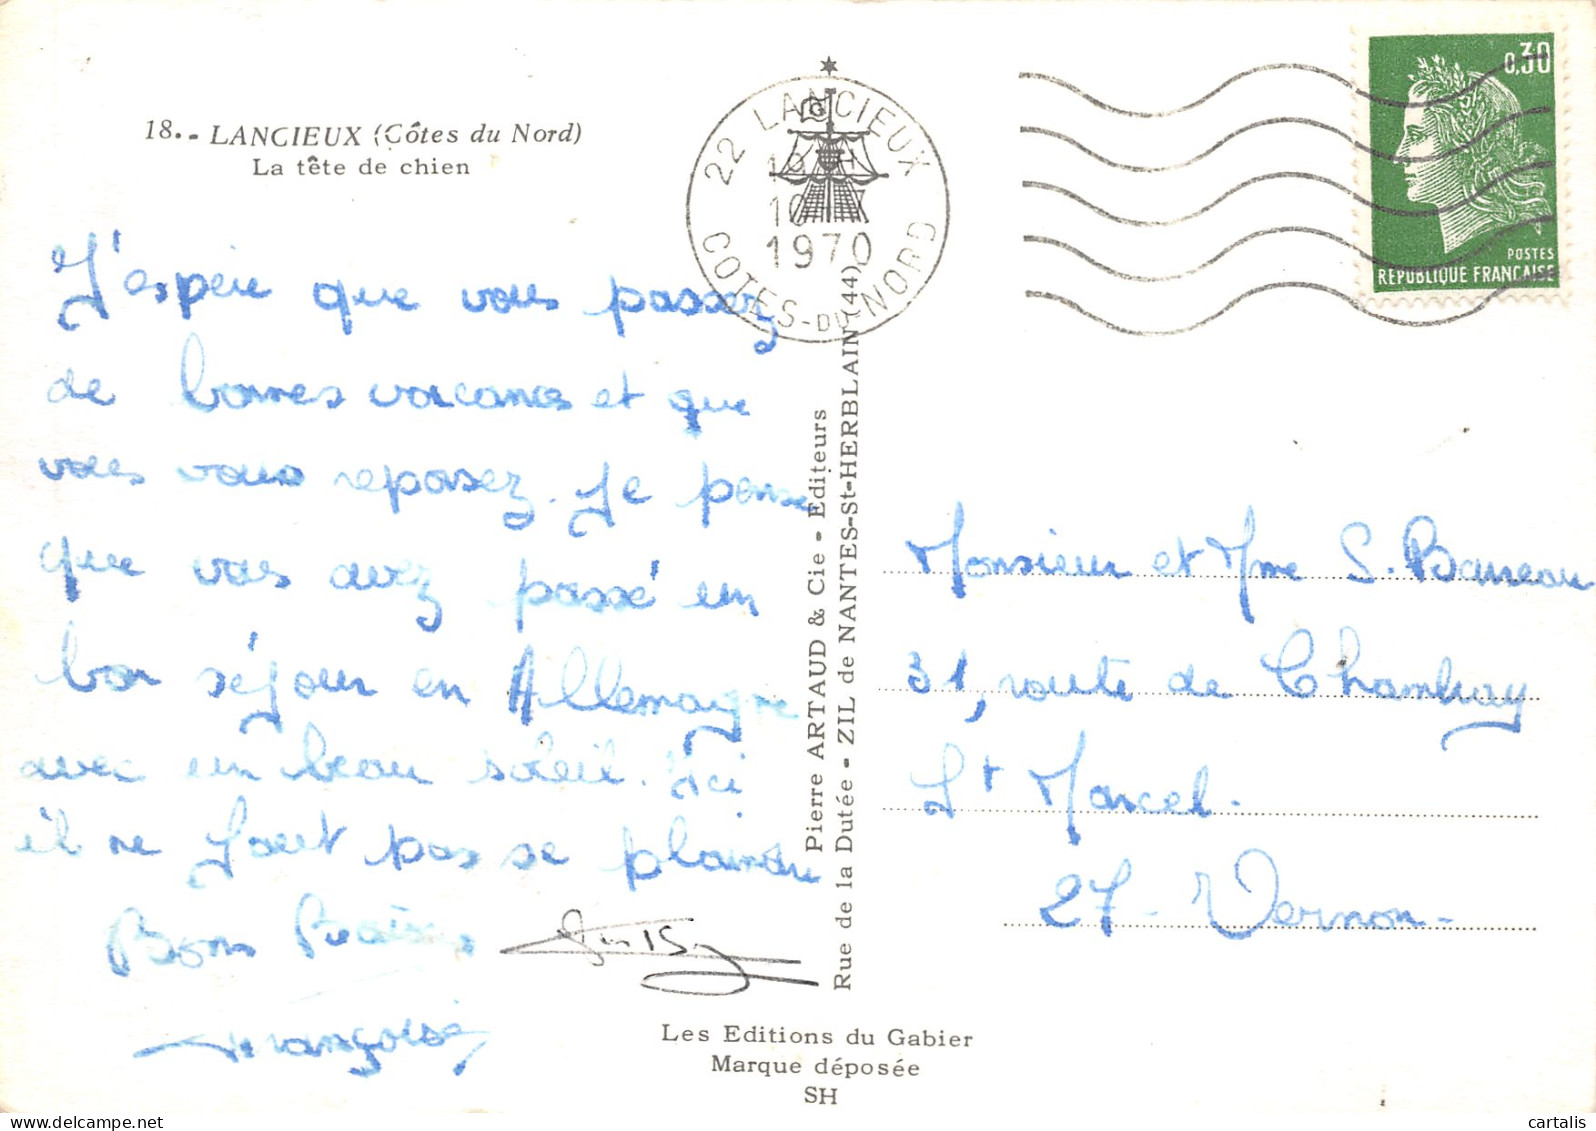 18.- LANCIEUX (Côtes du Nord)
La tête de chien
22 LANCIEUX
1970
COTES-DU-NORD
0,30
POSTES
REPUBLIQUE FRANCAISE
J'espère que vous passez
de bonnes vacances et que
vous vous reposez. Je pense
que vous avez passé un
bon séjour en Allemagne
avec un beau soleil. Ici
il ne faut pas se plaindre
Bons Baisers
Françoise
Pierre ARTAUD & Cie - Editeurs
Rue de la Dutée - ZIL de NANTES-St-HERBLAIN (44)
Monsieur et Mme S. Barreau
31, route de Chambray
St Marcel.
27 - Vernon -
Les Editions du Gabier
Marque déposée
SH
cartalis